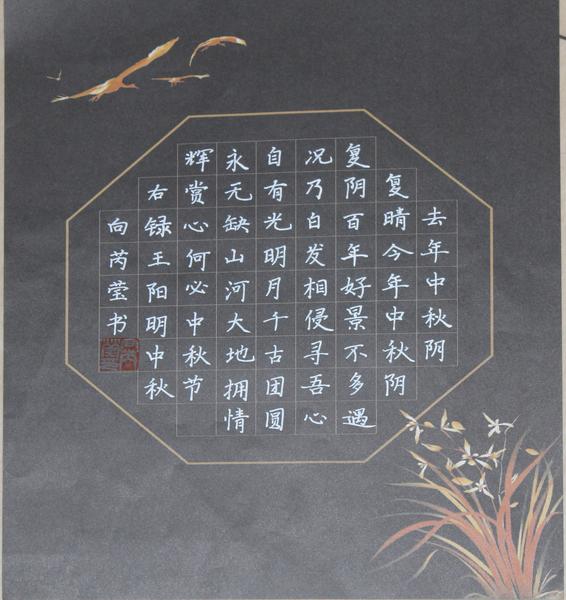 去年中秋阴
复晴今年中秋阴
复阴百年好景不多遇
况乃白发相侵寻吾心
自有光明月千古团圆
永无缺山河大地拥情
辉赏心何必中秋节
右録王阳明中秋
向芮莹书